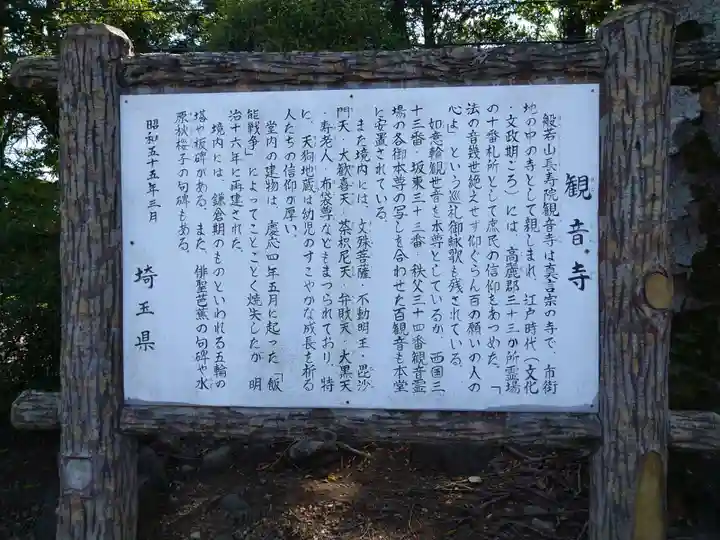 観音寺
般若山長寿院観音寺は真言宗の寺で、市街
地の中の寺として親しまれ、江戸時代（文化
・文政期ごろ）には、高麗郡三十三か所霊場
の十番札所として庶民の信仰をあつめた。「
法の音幾世絶えせす仰ぐらん百の願いの人の
心よ」という巡礼御詠歌も残されている。
如意輪観世音を本尊としているが、西国三
十三番・坂東三十三番・秩父三十四番観音霊
場の各御本尊の写しを合わせた百観音も本堂
に安置されている。
また境内には、文殊菩薩・不動明王・毘沙
門天・大歓喜天・荼枳尼天・弁財天・大黒天
・寿老人・布袋尊などもまつられており、特
に、天狗地蔵は幼児のすこやかな成長を祈る
人たちの信仰が厚い。
堂内の建物は、慶応四年五月に起った「飯
能戦争」によってことごとく焼失したが、明
治十六年に再建された。
境内には、鎌倉期のものといわれる五輪の
塔や板碑がある。また、俳聖芭蕉の句碑や水
原秋桜子の句碑もある。
昭和五十五年三月
埼玉県